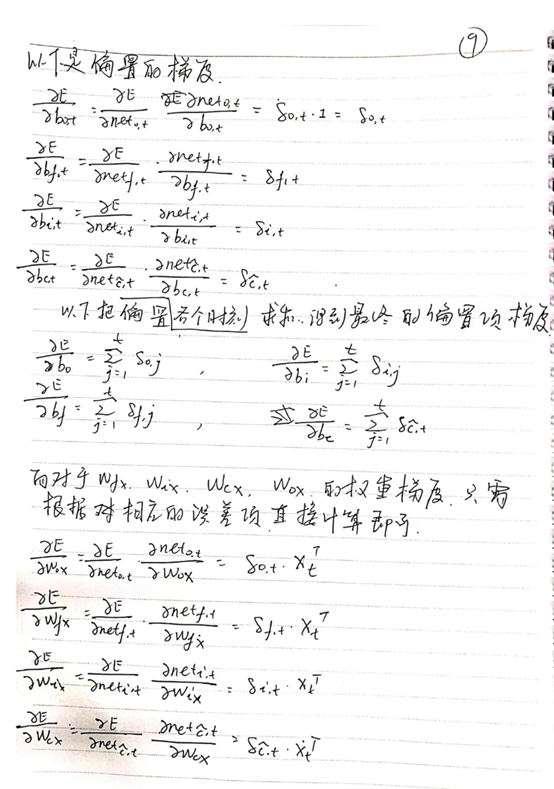 ⑨
以下是偏置的梯度.
∂E/∂bo,t = ∂E/∂neto,t ∂neto,t/∂bo,t = δo,t · 1 = δo,t
∂E/∂bf,t = ∂E/∂netf,t · ∂netf,t/∂bf,t = δf,t
∂E/∂bi,t = ∂E/∂neti,t · ∂neti,t/∂bi,t = δi,t
∂E/∂bc,t = ∂E/∂netc̃,t · ∂netc̃,t/∂bc,t = δc̃,t
以下把偏置各个时刻求和..得到最终的偏置项梯度
∂E/∂bo = Σ_{j=1}^{t} δo,j , ∂E/∂bi = Σ_{j=1}^{t} δi,j
∂E/∂bf = Σ_{j=1}^{t} δf,j , ∂E/∂bc = Σ_{j=1}^{t} δc̃,t
而对于Wfx. Wix. Wcx. Wox. 的权重梯度. 只需
根据对相应的误差项直接计算即可.
∂E/∂Wox = ∂E/∂neto,t · ∂neto,t/∂Wox = δo,t · Xt^T
∂E/∂Wfx = ∂E/∂netf,t · ∂netf,t/∂Wfx = δf,t · Xt^T
∂E/∂Wix = ∂E/∂neti,t ∂neti,t/∂Wix = δi,t · Xt^T
∂E/∂Wcx = ∂E/∂netc̃,t ∂netc̃,t/∂Wcx = δc̃,t · Xt^T